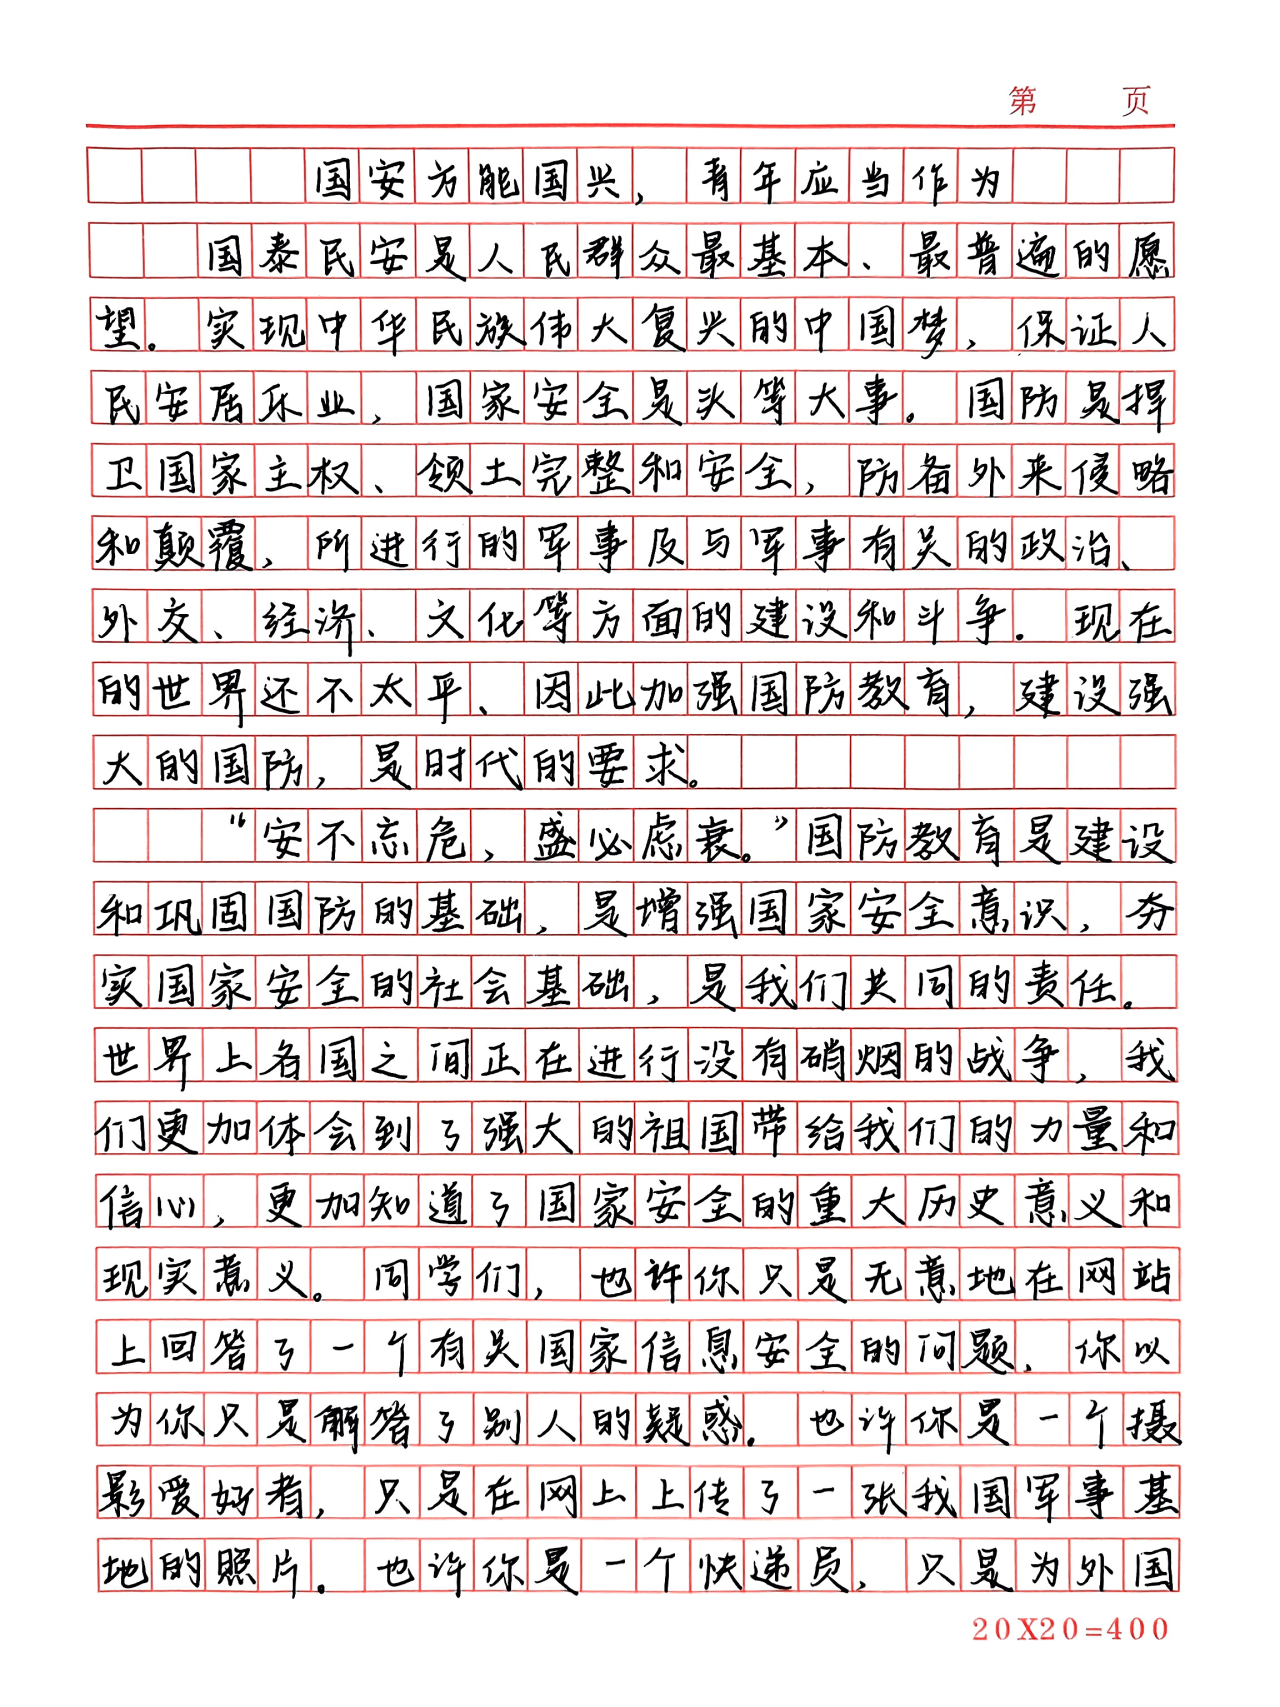 第 页
国安方能国兴，青年应当作为
国泰民安是人民群众最基本、最普遍的愿
望。实现中华民族伟大复兴的中国梦，保证人
民安居乐业，国家安全是头等大事。国防是捍
卫国家主权、领土完整和安全，防备外来侵略
和颠覆，所进行的军事及与军事有关的政治、
外交、经济、文化等方面的建设和斗争．现在
的世界还不太平、因此加强国防教育，建设强
大的国防，是时代的要求。
“安不忘危，盛必虑衰。”国防教育是建设
和巩固国防的基础，是增强国家安全意识，夯
实国家安全的社会基础，是我们共同的责任．
世界上各国之间正在进行没有硝烟的战争，我
们更加体会到了强大的祖国带给我们的力量和
信心，更加知道了国家安全的重大历史意义和
现实意义。同学们，也许你只是无意地在网站
上回答了一个有关国家信息安全的问题，你以
为你只是解答了别人的疑惑．也许你是一个摄
影爱好者，只是在网上上传了一张我国军事基
地的照片．也许你是一个快递员，只是为外国
20X20=400